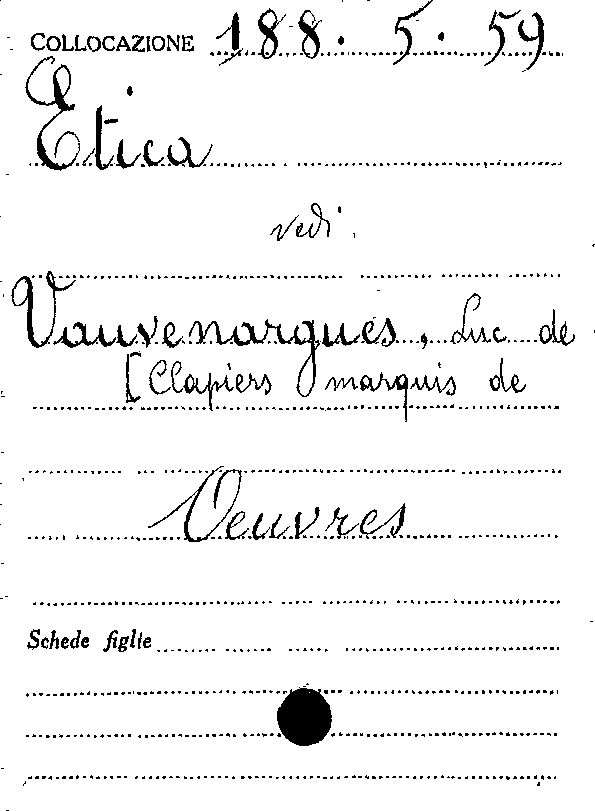 COLLOCAZIONE 188. 5. 59
Etica
vedi.
Vauvenargues, Luc de
[Clapiers marquis de
Oeuvres
Schede figlie